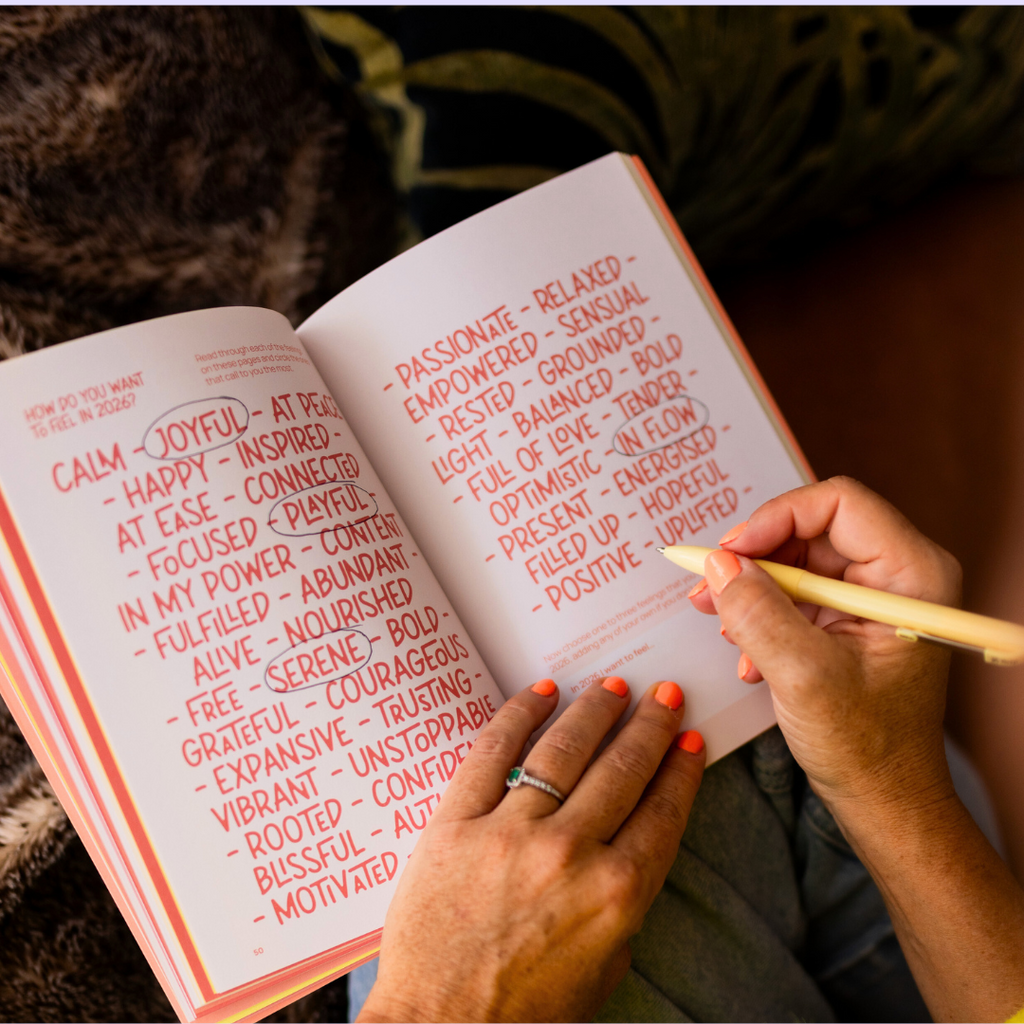 HOW DO YOU WANT
TO FEEL IN 2026?
Read through each of the
on these pages and circle the
that call to you the most.
CALM - JOYFUL - AT PEACE
- HAPPY - INSPIRED -
AT EASE - CONNECTED
- FOCUSED - PLAYFUL
IN MY POWER - CONTENT
- FULFILLED - ABUNDANT -
ALIVE - NOURISHED
- FREE - SERENE - BOLD -
GRATEFUL - COURAGEOUS
- EXPANSIVE - TRUSTING -
VIBRANT - UNSTOPPABLE
- ROOTED - CONFIDEN
BLISSFUL - AUTH
- MOTIVATED
50
- PASSIONATE - RELAXED -
EMPOWERED - SENSUAL
- RESTED - GROUNDED -
LIGHT - BALANCED - BOLD
- FULL OF LOVE - TENDER -
OPTIMISTIC - IN FLOW
- PRESENT - ENERGISED -
FILLED UP - HOPEFUL
- POSITIVE - UPLIFTED -
Now choose one to three feelings that you
2026, adding any of your own if you don't
In 2026 I want to feel...